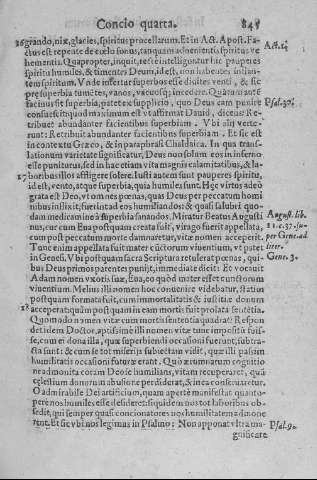 Concio quarta. 845
26 grando, nix, glacies, spiritus procellarum. Et in Act. Apost. Fa-
ctus est repente de cœlo sonus, tanquam aduenientis spiritus ve Act. 2.
hementis. Quapropter, inquit, recte intelliguntur hic pauperes
spiritu humiles, & timentes Deum, id est, non habentes inflan-
tem spiritum. Vnde infertur superbos esse diuites venti, & sic
præ superbia tumētes, vanos, vacuosq; incedere. Quātum autē
facinus sit superbia, patet ex supplicio, quo Deus eam punire Psal. 30.
consueuit quod maximum est vt affirmat Dauid, dicens: Re-
tribuet abundanter facientibus superbiam. Vbi alij verte-
runt: Retribuit abundanter facientibus superbiam. Et sic est
in contextu Græco, & in paraphrasi Chaldaica. In qua trans-
lationum varietate significatur, Deus non solum eos in infer-
elle puniturus, sed in hac etiam vita magnis calamitatibus, & la-
17 boribus illos affligere solere. Iusti autem sunt pauperes spiritu,
id est, vento, atque superbia, quia humiles sunt. Hęc virtus adeò
grata est Deo, vt omnes pœnas, quas Deus per peccatum homi
nibus inflixit, fuerint ad eos humiliandos: & quasi salubri quo-
dam medicamine à superbia sanandos. Miratur Beatus Augusti August. lib.
nus, cur cum Eua postquam creata fuit, virago fuerit appellata, 11. c. 37. su-
cum post peccatum morte damnaretur, vitæ nomen acceperit. per Gene. ad
Tunc enim appellata fuit mater cūctorum viuentium, vt patet liter.
in Genesi. Vbi postquam sacra Scriptura retulerat pœnas, qui- Gene. 3.
bus Deus primos parentes puniit, immediate dicit: Et vocauit
Adam nomen vxoris suæ, Eua, eo quòd mater esset cunctorum
viuentium. Melius illi nomen hoc conuenire videbatur, statim
postquam formata fuit, cum immortalitatis & iustitiæ donum
18 acceperat; quàm postquam in eam mortis fuit prolata sententia.
Quomodo nomen vitæ cum mortis sententia quadrat? Respon
det idem Doctor, aptissimè illi nomen vitæ tunc impositū fuis-
se, cum ei dona illa, quæ superbiendi occasioni fuerunt, subtra-
cta sunt: & cum se tot miserijs subiectam vidit, quæ illi passim
humilitatis occasioni futuræ erant. Quò ærumnarum cognitio
ne admonita coram Deo se humilians, vitam recuperaret, quā
cęlestium donorum abusione perdiderat, & in ea conseruaretur.
O admirabile Dei artificium, quam apertè manifestat quanto-
perè nos humiles esse desideret: siquidem nos tot laboribus ob-
sedit, qui semper quasi concionatores nos humilitatem admone
rent. Et sic vbi nos legimus in Psalmo: Non apponat vltra ma- Psal. 9.
gnificare